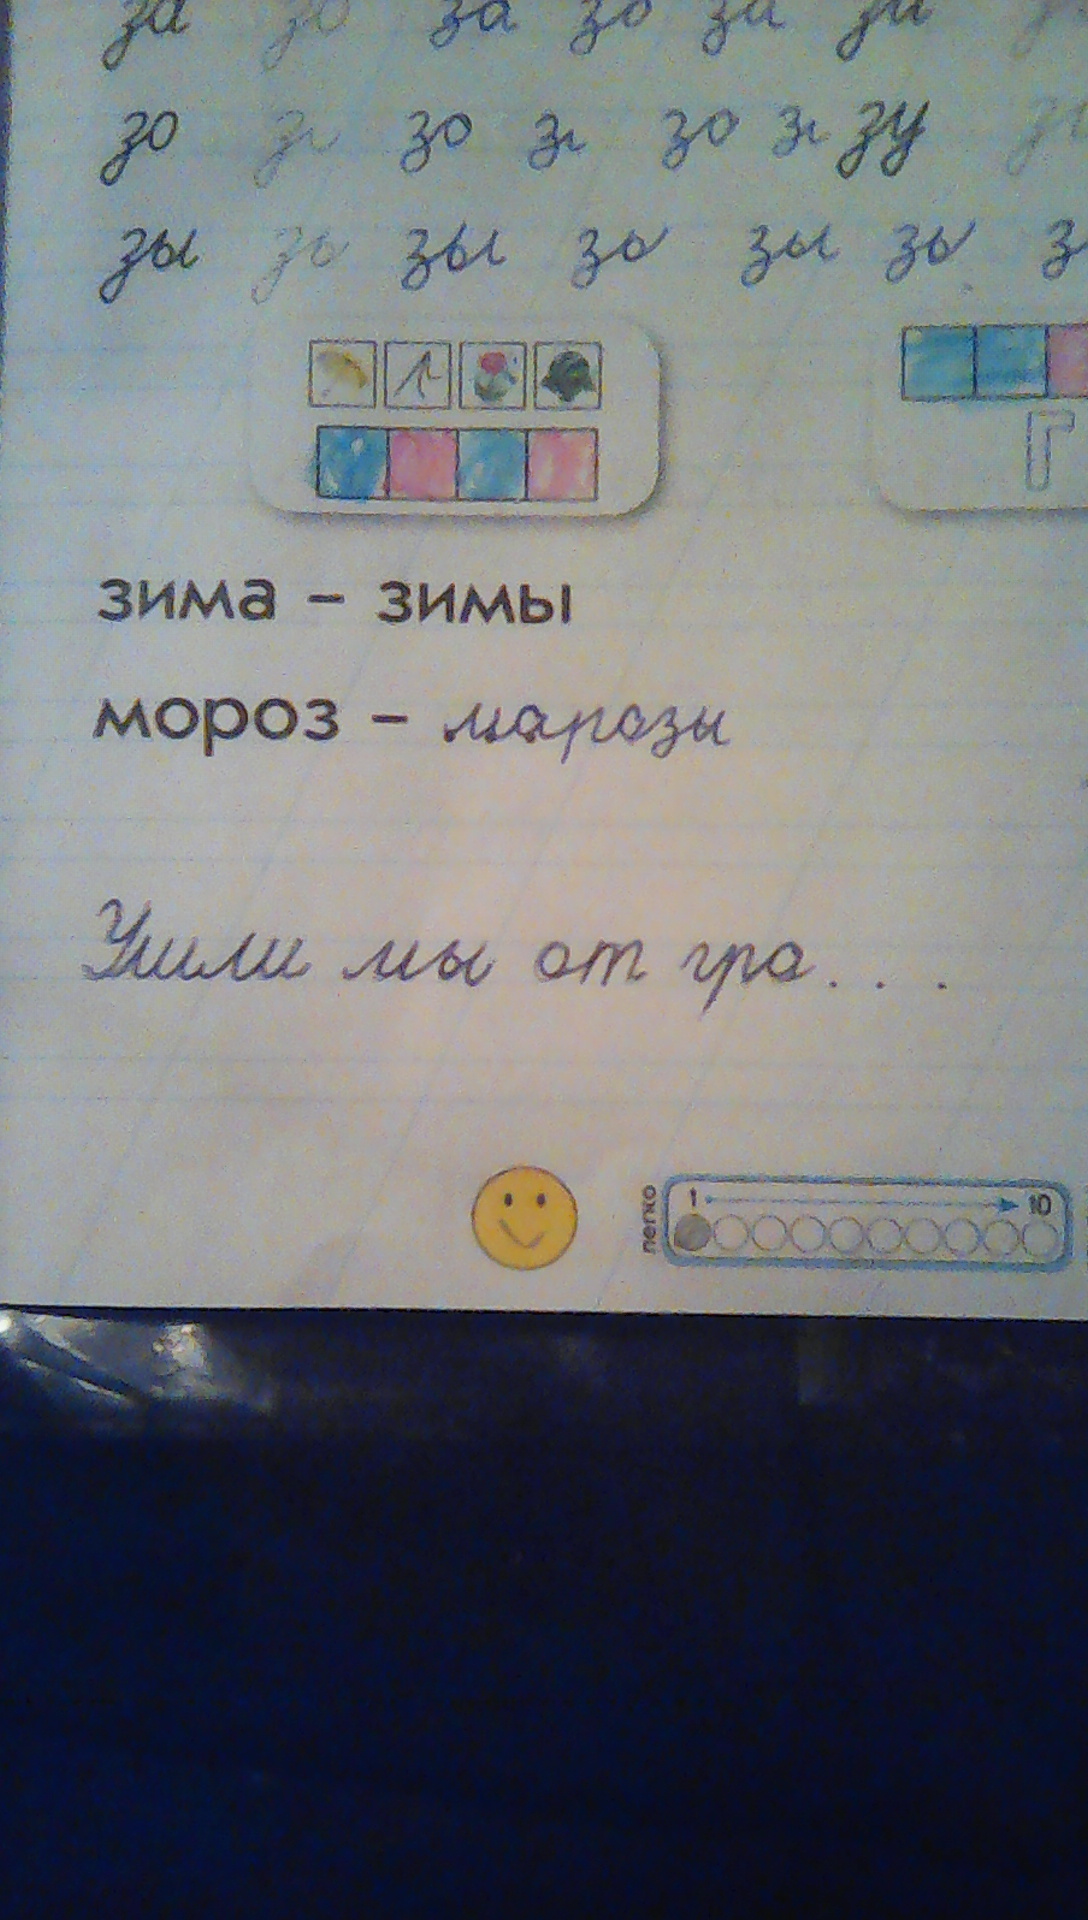 за зо за зо за зи
зо зи зо зи зо зи зу
зы зь зы зь зы зь з
Г
зима – зимы
мороз – марозы
Ушли мы от гро. . .
легко 1 10